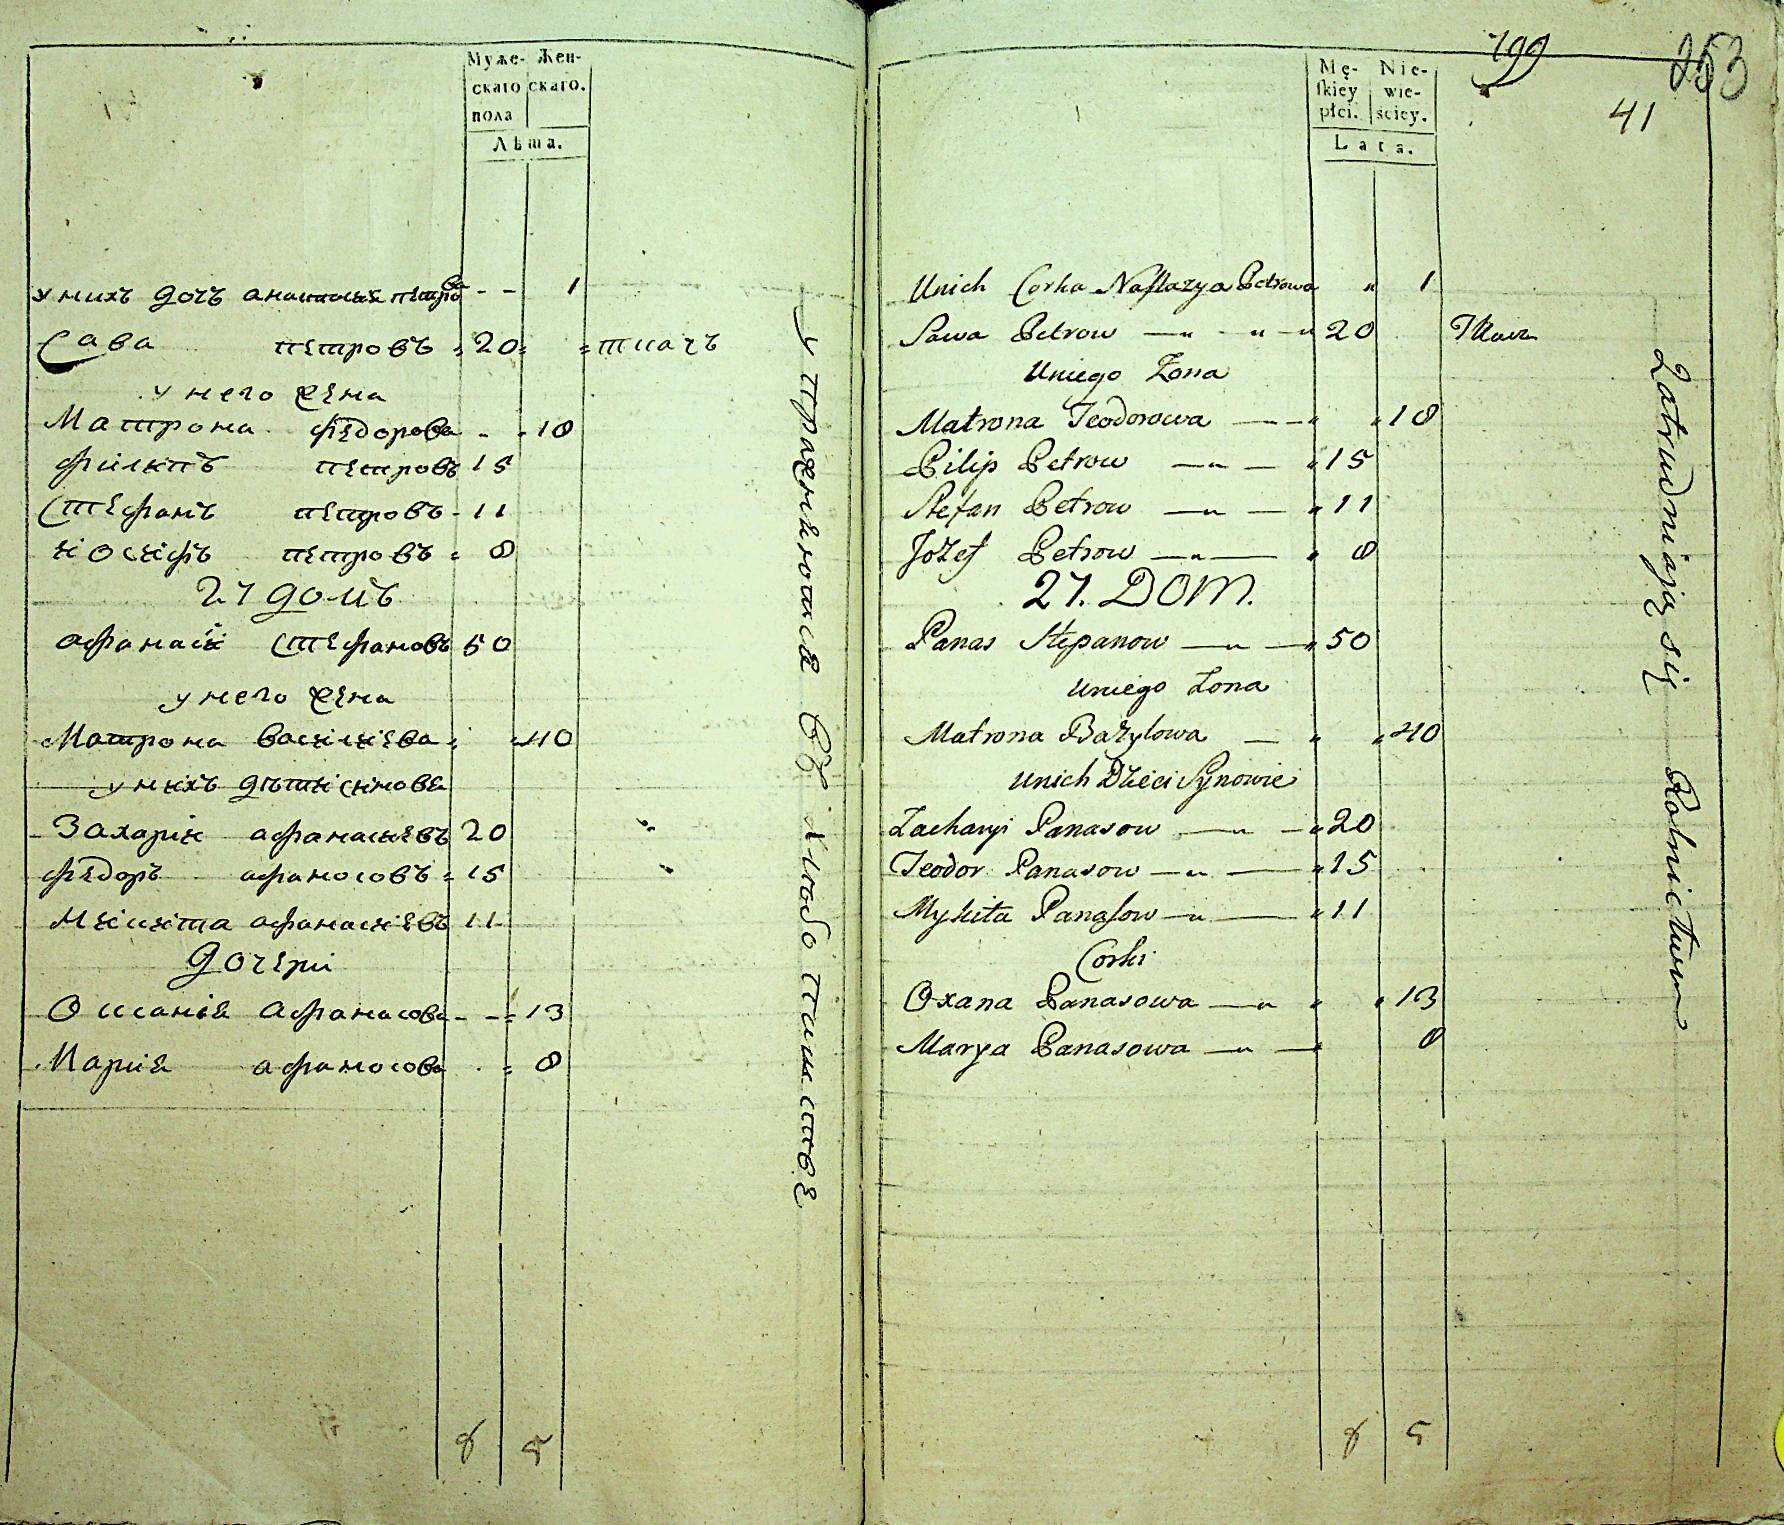 Муже- Жен-
скаго скаго.
пола
Лѣта.
у нихъ дочь анастасия петрова - - 1
Сава петровъ 20 ткачъ
у него жена
Матрона федорова - 18
филипъ петровъ 15
Стефанъ петровъ - 11
иосифъ петровъ 8
27 домъ
афанасй Стефановъ 50
у него жена
Матрона василиева 40
у нихъ дѣти синовя
Захарии афанасиевъ 20
федоръ афаносовъ 15
Микита афанасиевъ 11
дочери
Оксания Афанасова - - 13
Мария афаносова 8
8 5
упражняются въ хлѣбопашстве
799
253
41
Mę- Nie-
skiey wie-
płci. sciey.
Lata.
Unich Corka Nastazya Petrowa " 1
Sawa Petrow — " - " - " 20 Tkacz
Uniego Zona
Matrona Teodorowa — - " " 18
Pilip Petrow — " — " 15
Stefan Petrow — " — " 11
Jozef Petrow — " — " 8
27. DOM.
Panas Stepanow — " — " 50
Uniego Zona
Matrona Bazylowa — " " 40
Unich Dzieci Synowie
Zacharyi Panasow — " — " 20
Teodor Panasow — " — " 15
Mykita Panasow — " — " 11
Corki
Oxana Panasowa — " " " 13
Marya Panasowa — " — " 8
8 5
Zatrudniaią się Rolnictwem